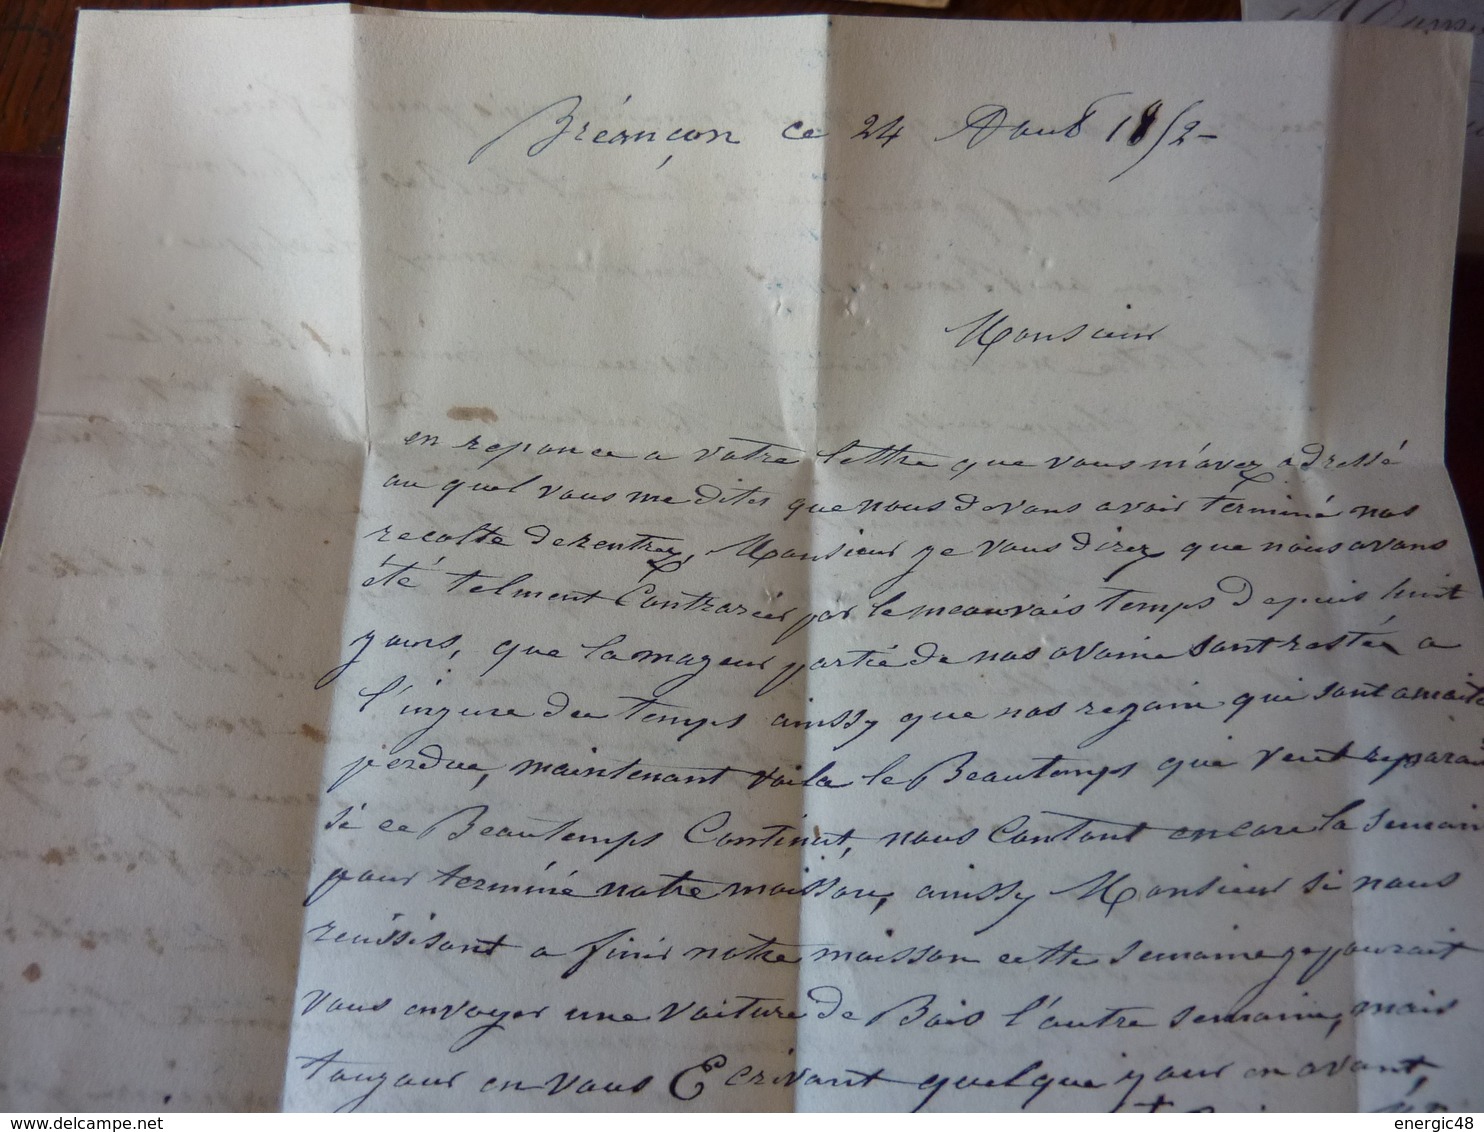 Bréançon ce 24 Aout 1852
Monsieur
en reponce a votre lettre que vous m'avez adressé
au quel vous me dites que nous devons avoir terminé nos
recolte de rentrez, Monsieur je vous direz que nous avons
été telment Contrariér par le meauvais temps depuis huit
jours, que la mageur partié de nos avoine sont restée a
l'injure du temps ainssy que nos regain qui sont a moité
perdue, maintenant voila le Beautemps qui veut reparai
si ce Beautemps Continut, nous Contont encore la semain
pour terminé notre moisson, ainssy Monsieur si nous
reuissisont a finir notre moisson cette semaine je pourait
vous envoyer une voiture de Bois l'autre semaine, mais
toujour en vous Ecrivant quelque jour en avant,
energic48